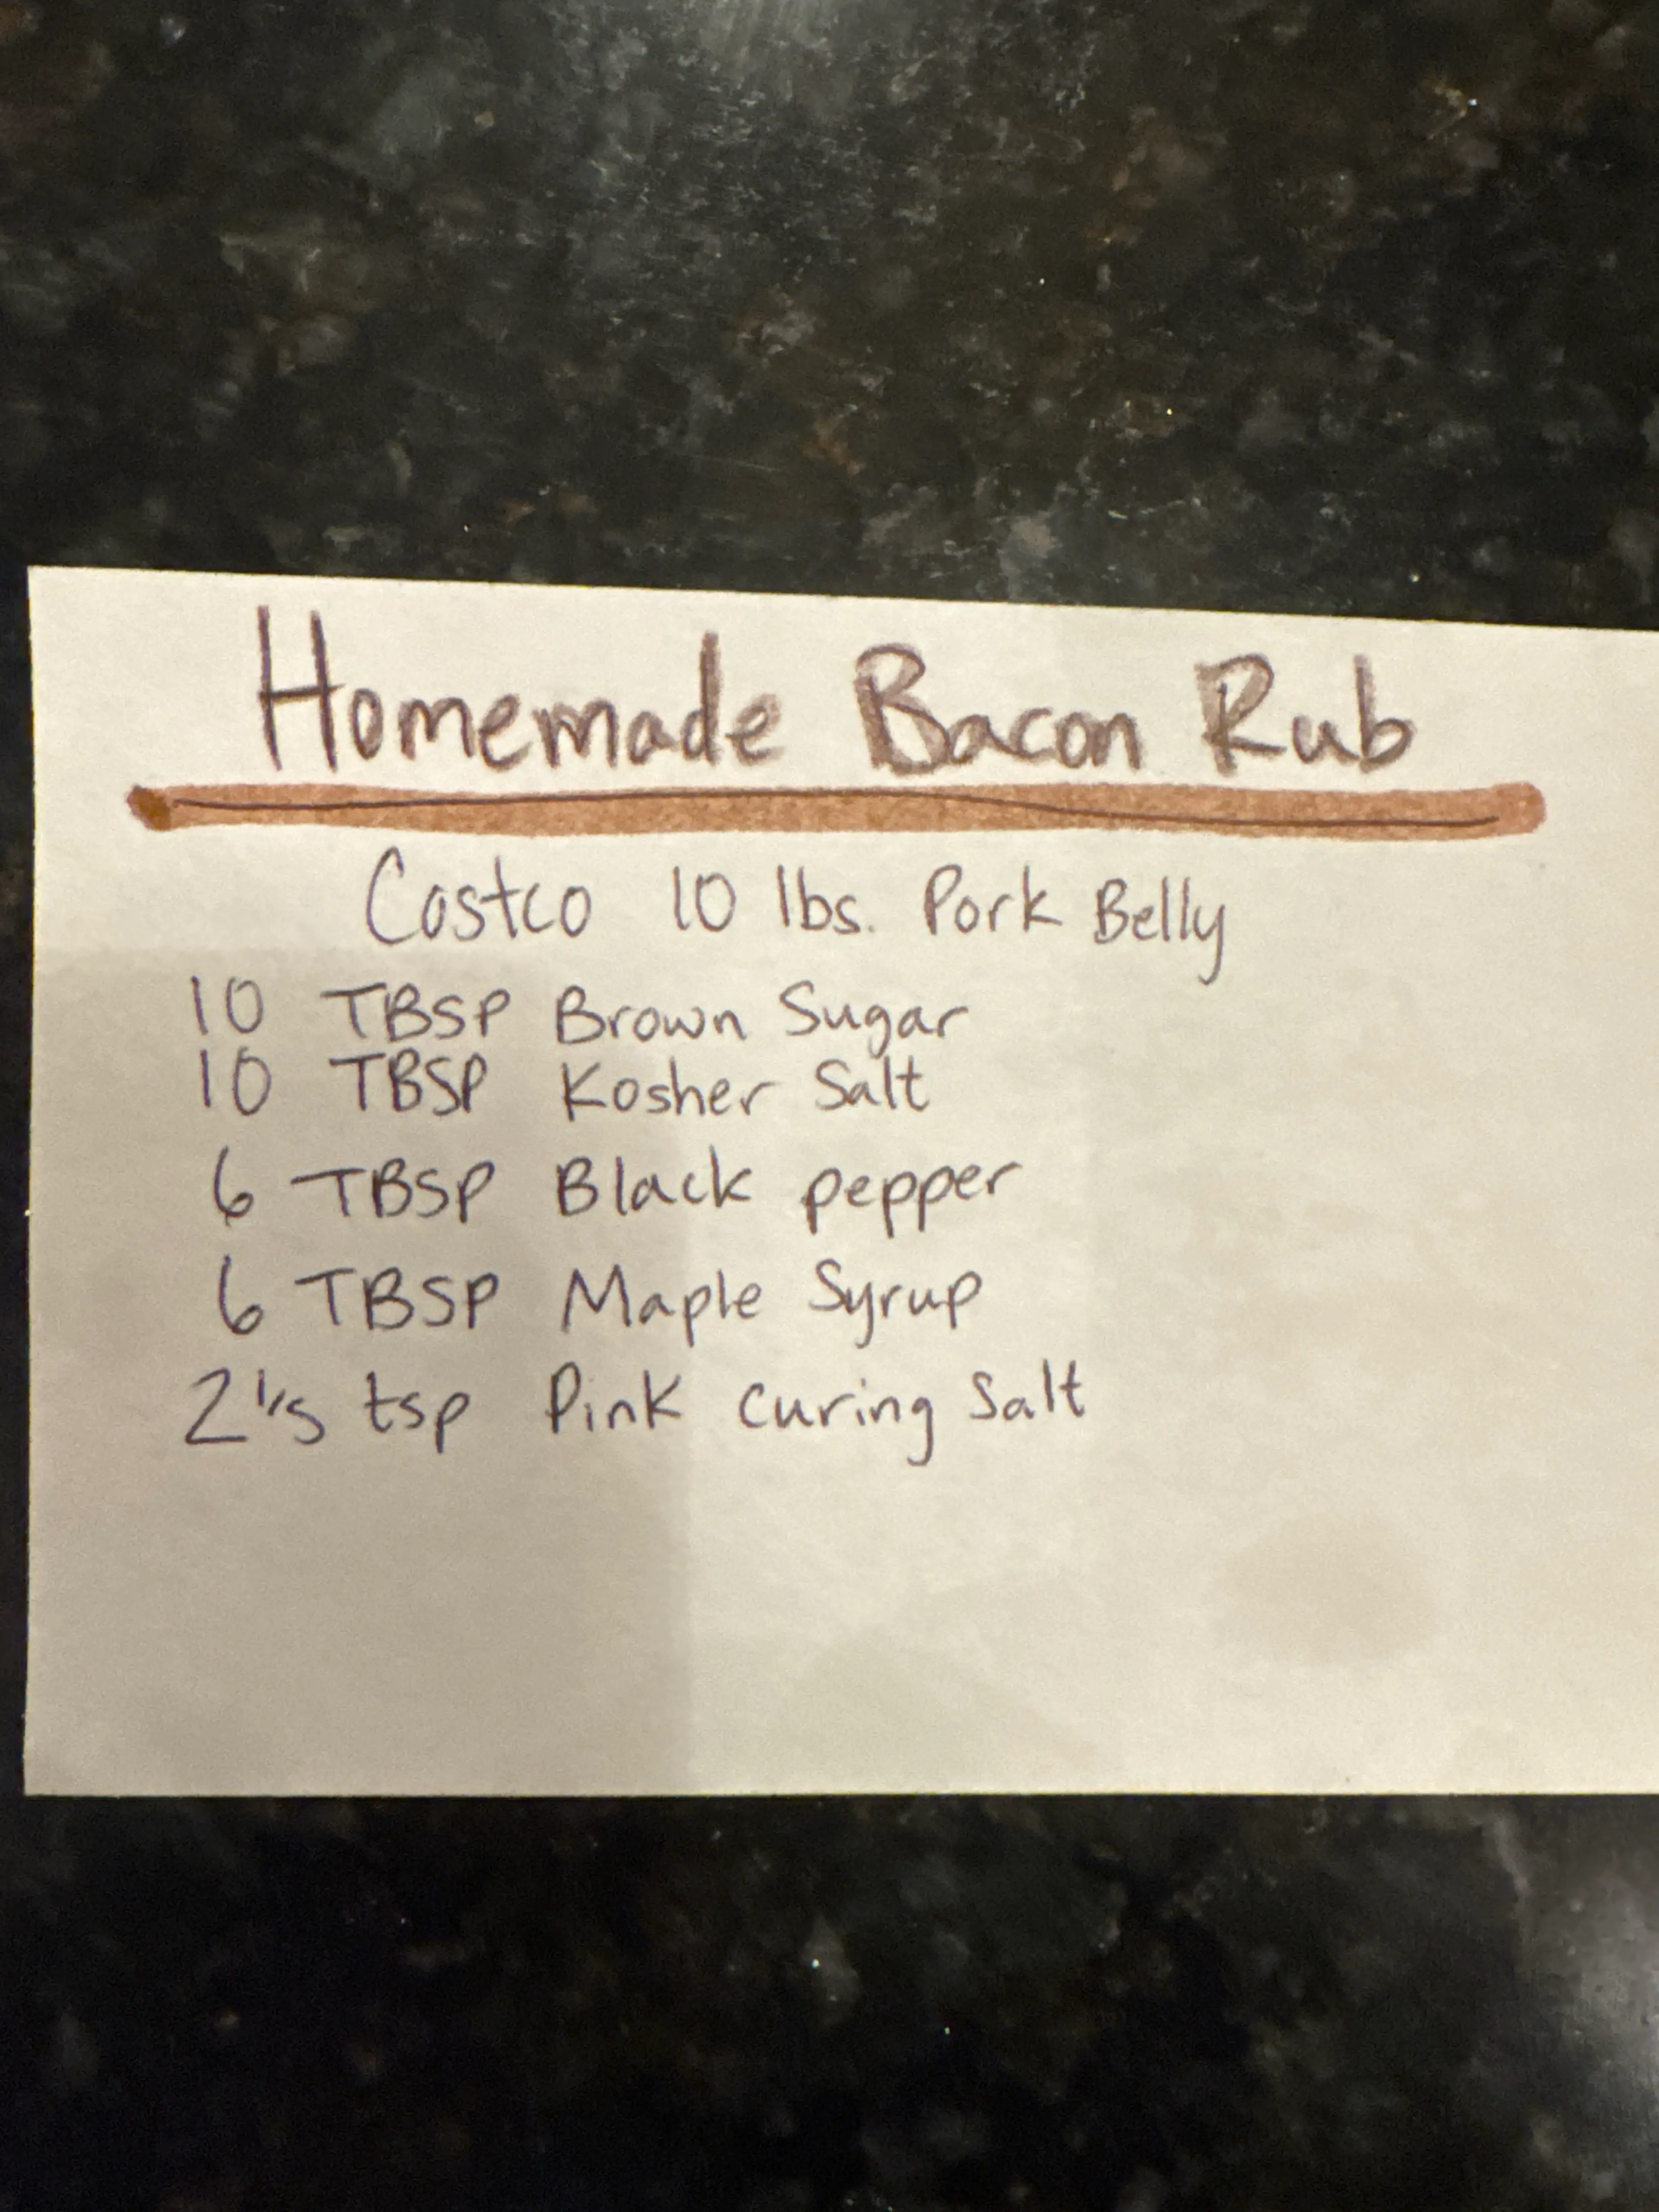 Homemade Bacon Rub
Costco 10 lbs. Pork Belly
10 TBSP Brown Sugar
10 TBSP Kosher Salt
6 TBSP Black pepper
6 TBSP Maple Syrup
2 1/5 tsp Pink Curing Salt